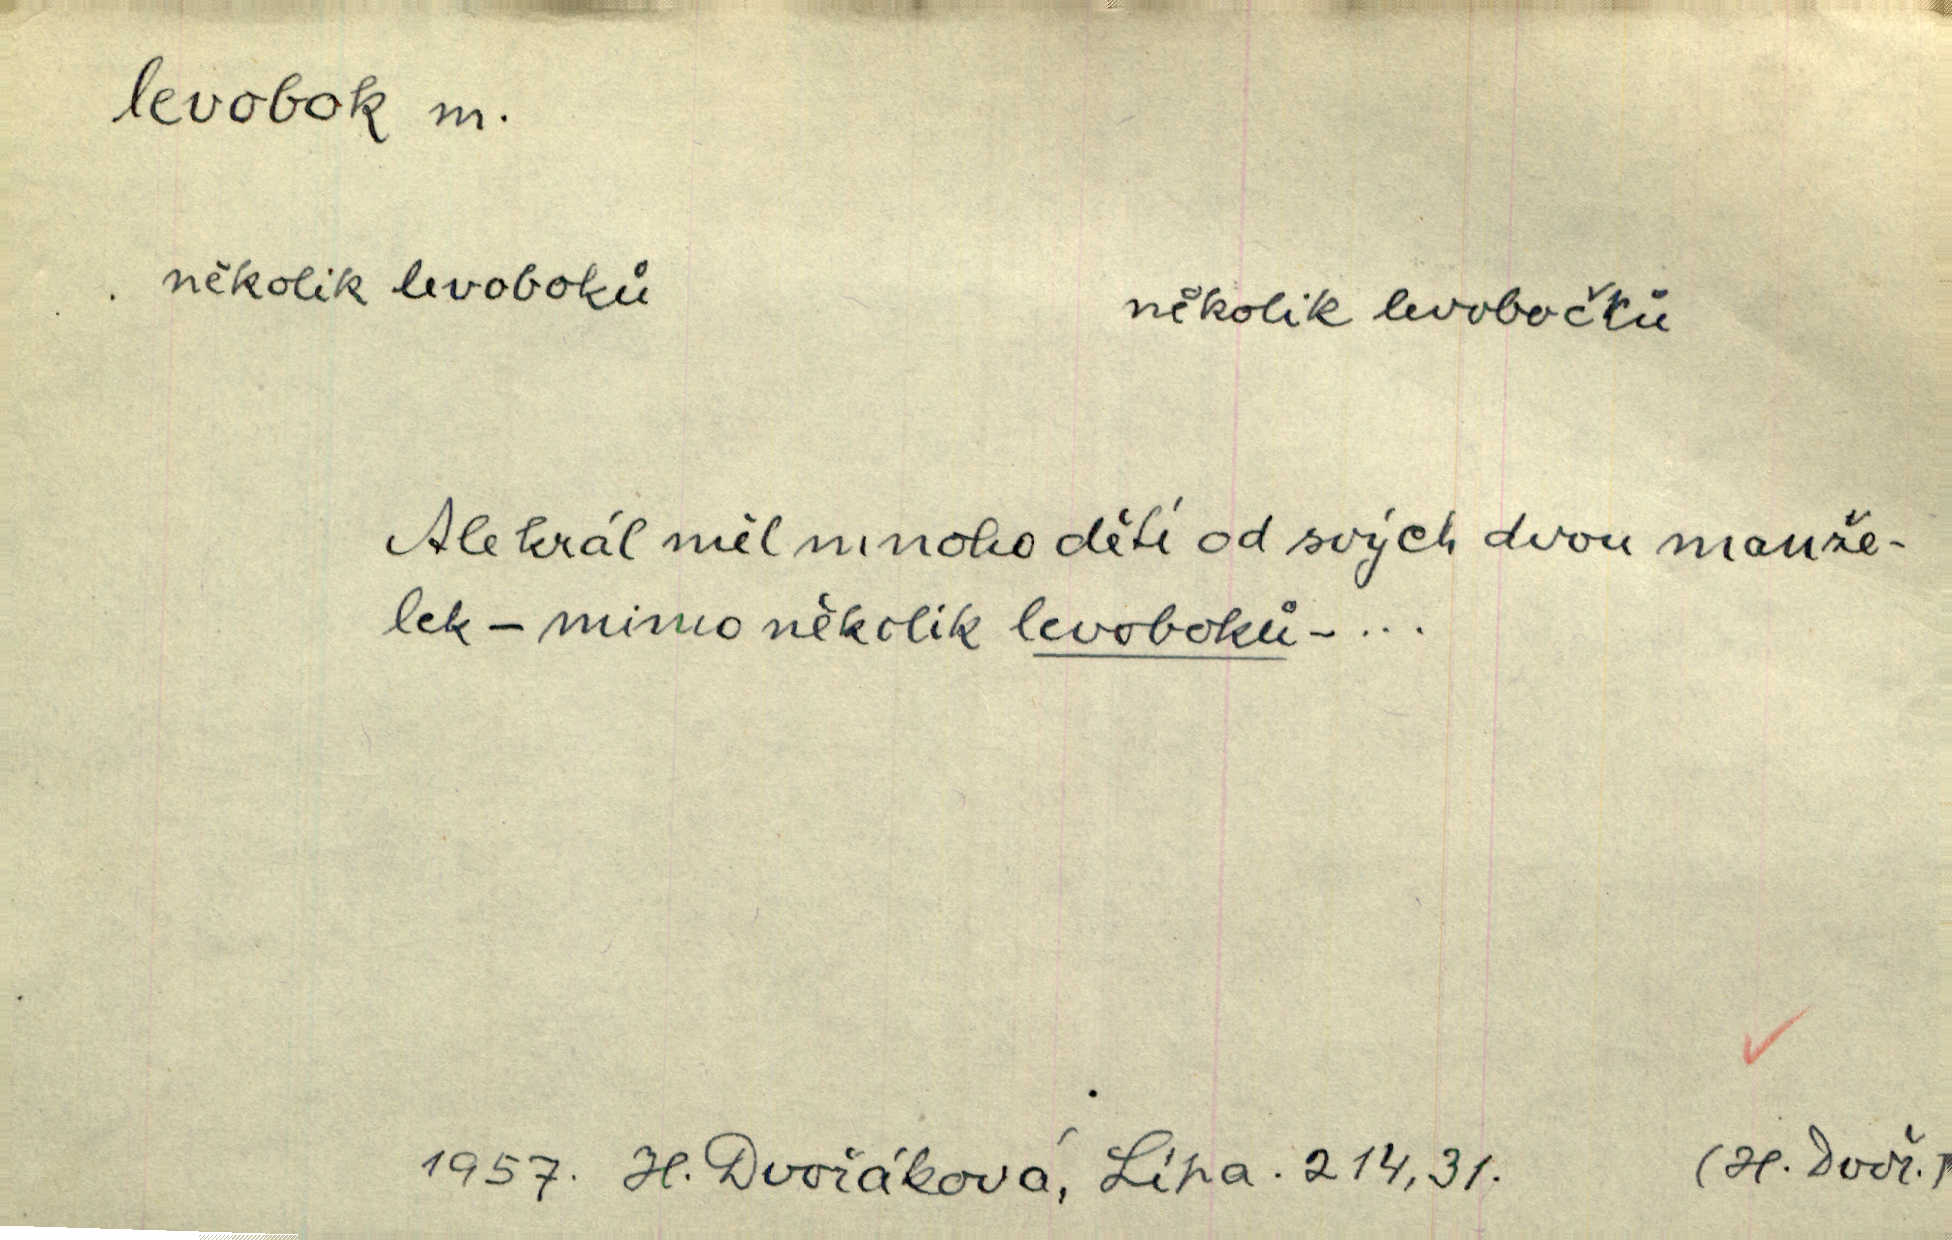 levobok m.
několik levoboků
několik levobočků
Ale král měl mnoho dětí od svých dvou manže-
lek – mimo několik levoboků – ...
1957. H. Dvořáková, Lípa. 214,31.
(H. Dvoř.)